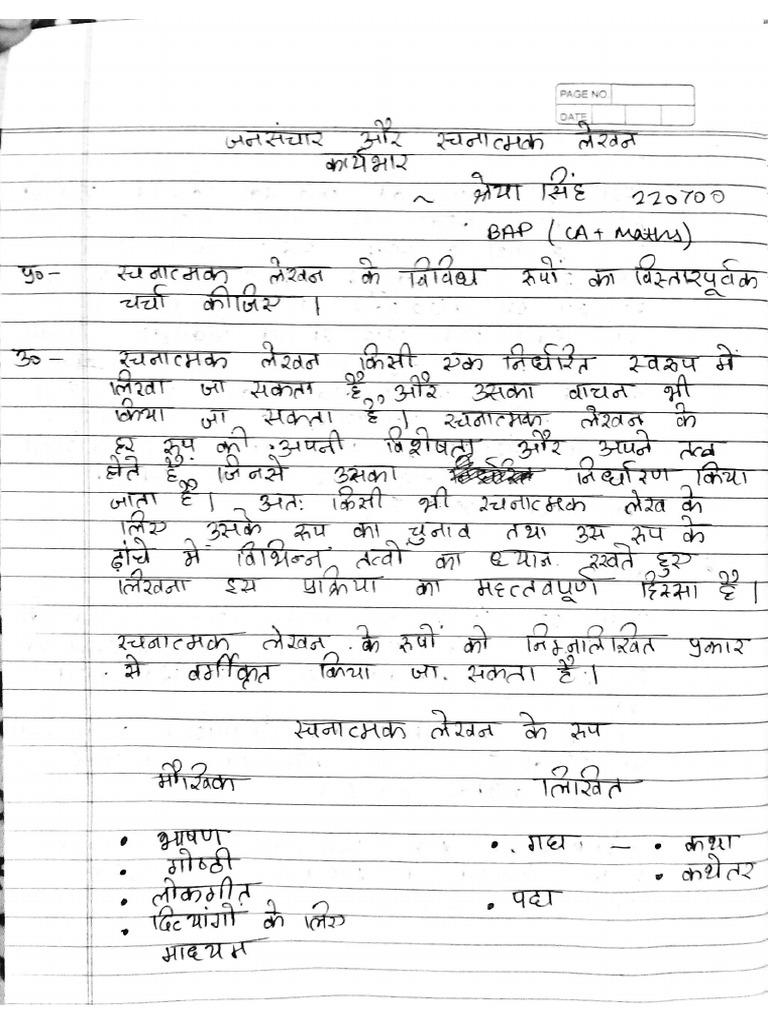 PAGE NO.
DATE
जनसंचार और रचनात्मक लेखन
कार्यभार
~ श्रेया सिंह 220700
BAP (CA + Maths)
प्र० - रचनात्मक लेखन के विविध रूपों का विस्तारपूर्वक
चर्चा कीजिए ।
उ० - रचनात्मक लेखन किसी एक निर्धारित स्वरूप में
लिखा जा सकता है और उसका वाचन भी
किया जा सकता है । रचनात्मक लेखन के
हर रूप की अपनी विशेषता और अपने तत्व
होते है जिनसे उसका निर्धारण किया
जाता है । अतः किसी भी रचनात्मक लेख के
लिए उसके रूप का चुनाव तथा उस रूप के
ढ़ांचे में विभिन्न तत्वों का ध्यान रखते हुए
लिखना इस प्रक्रिया का महत्तवपूर्ण हिस्सा है ।
रचनात्मक लेखन के रूपों को निम्नलिखित प्रकार
से वर्गीकृत किया जा सकता है ।
रचनात्मक लेखन के रूप
मौखिक लिखित
• भाषण • गद्य – • कथा
• गोष्ठी • कथेतर
• लोकगीत • पद्य
• दिव्यांगो के लिए
माध्यम